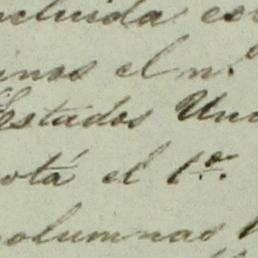 cluida es
unos el n.º
Estados Uni
otá el 1.º
columnas